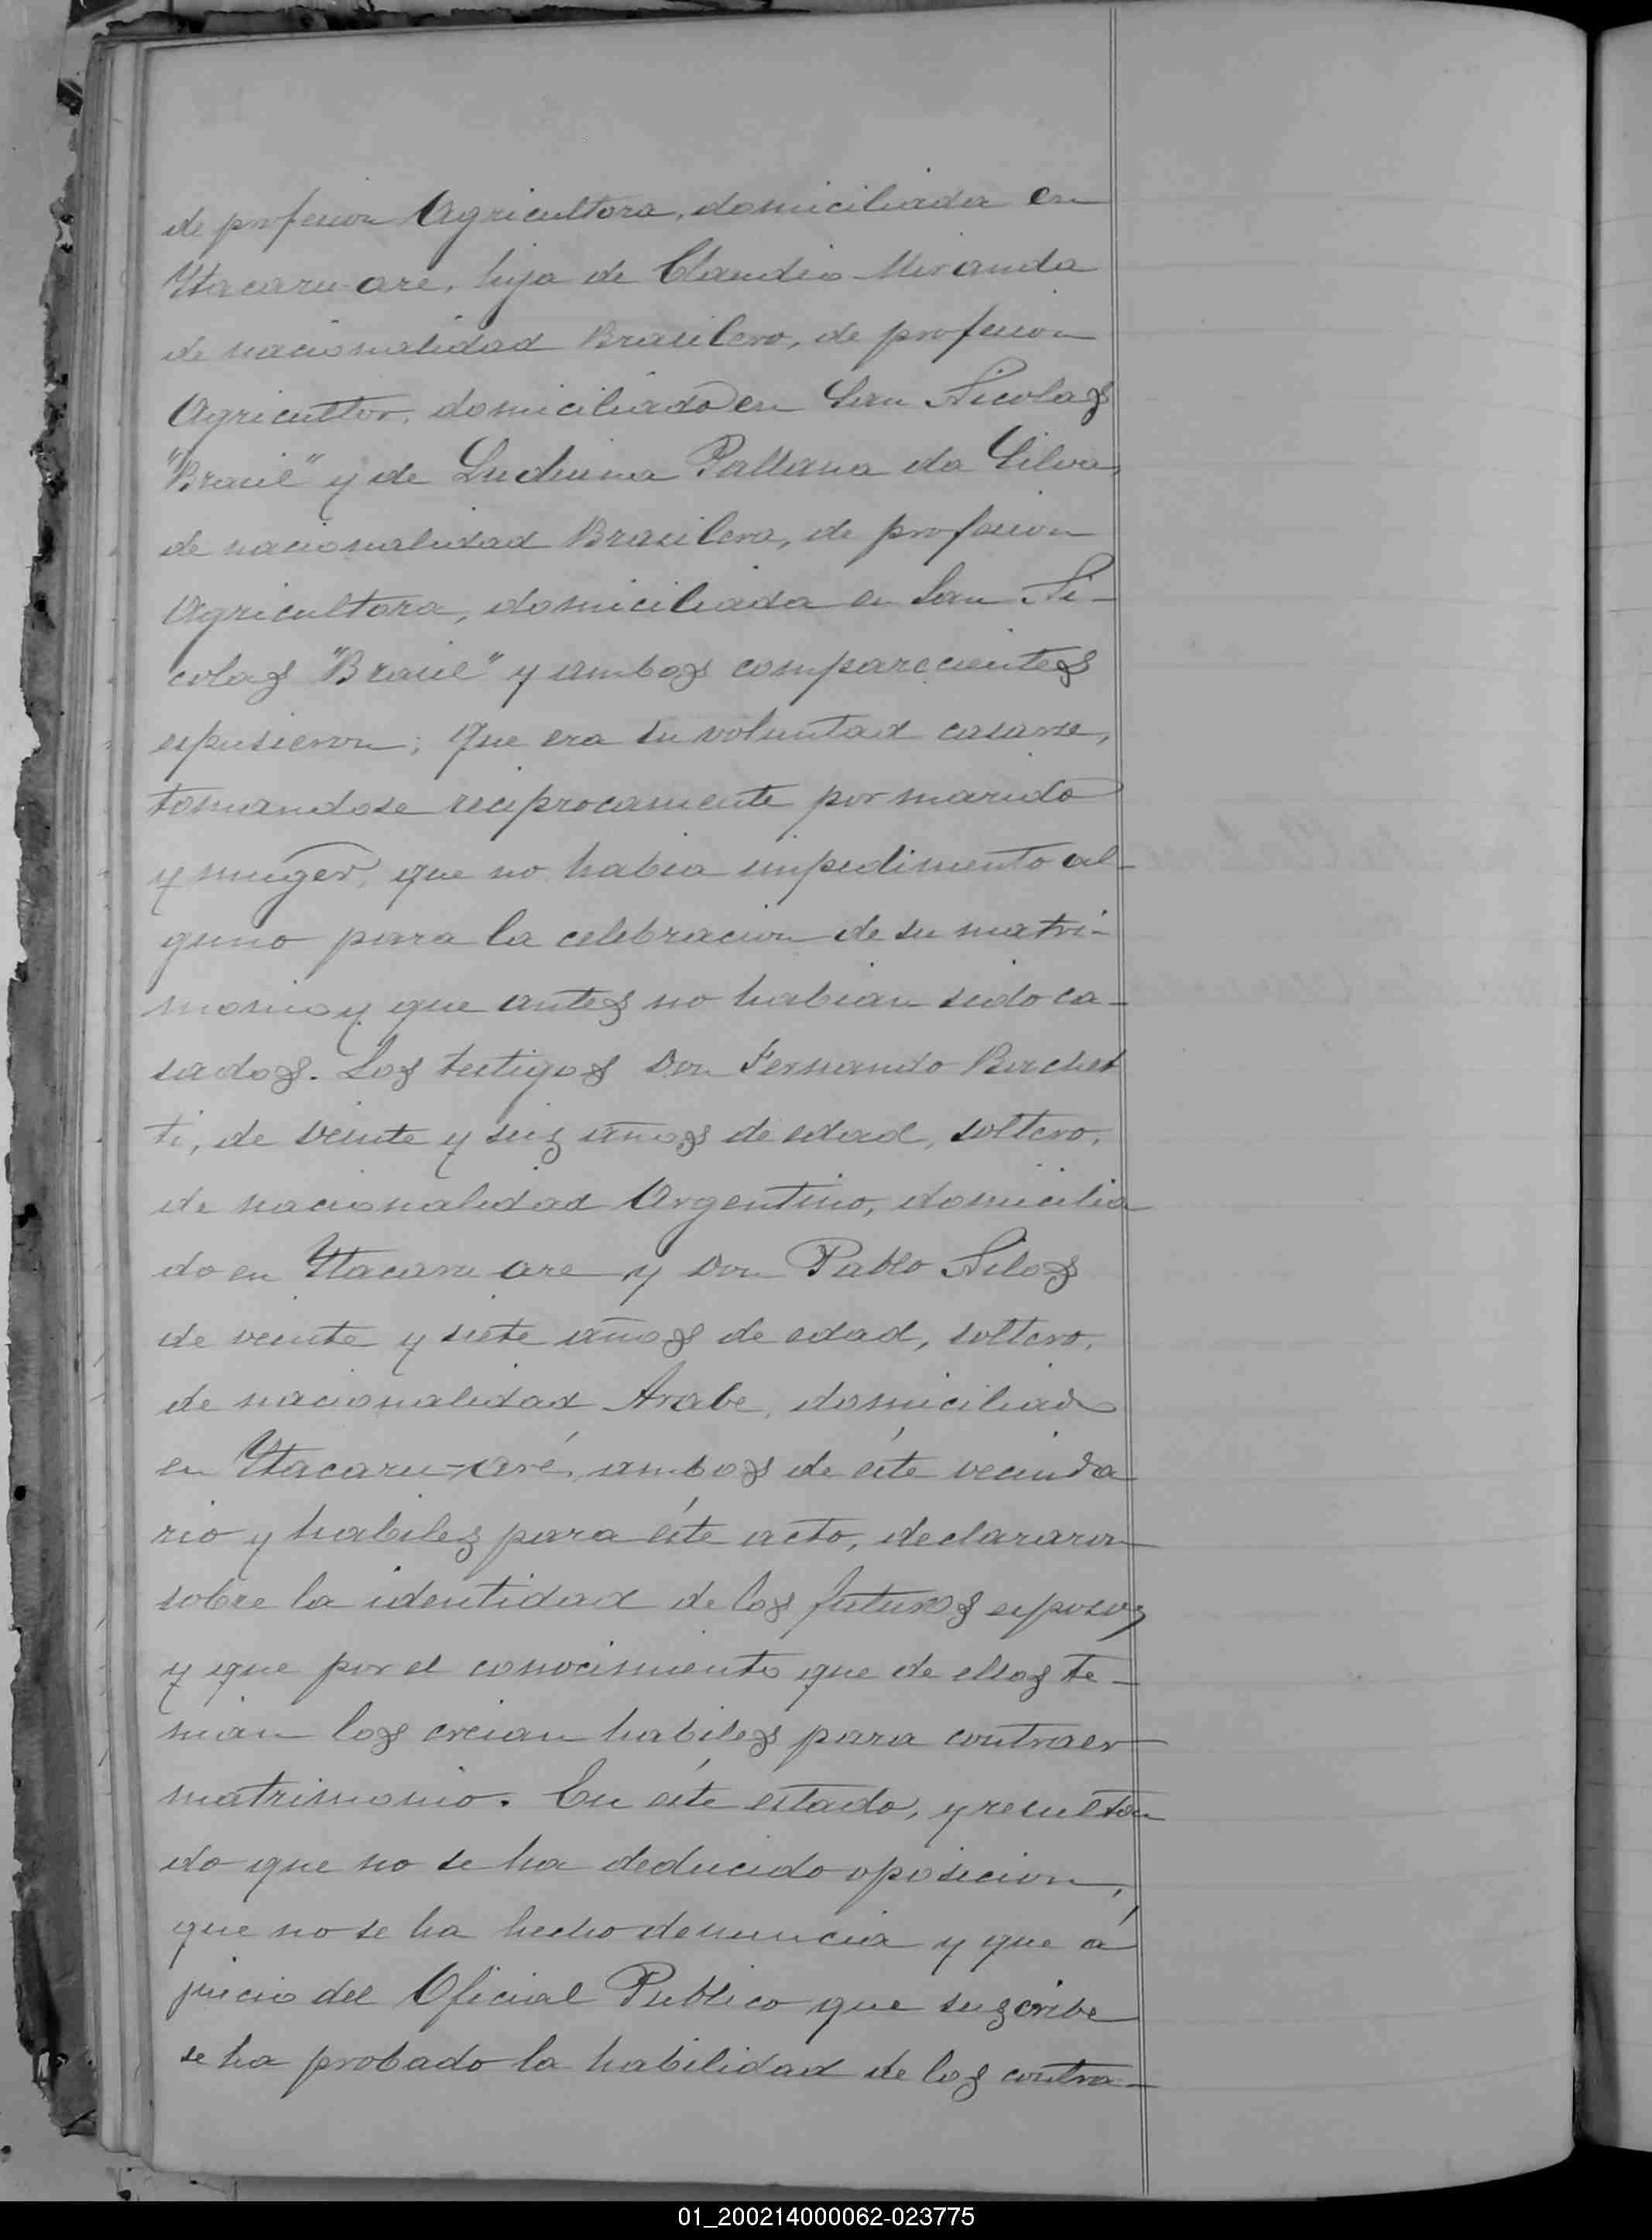 de profesion Agricultora, domiciliada en
Ytacaru-aré, hija de Claudio Miranda
de nacionalidad Brasilero, de profesion
Agricultor, domiciliado en San Nicolas
"Brasil" y de Ludiuina da Silva,
de nacionalidad Brasilera, de profesion
Agricultora, domiciliada en San Ni-
colas "Brasil" y ambos comparecientes
espusieron; que era su voluntad casarse,
tomandose reciprocamente por marido
y muger, que no habia impedimento al-
guno para la celebracion de su matri-
monio y que antes no habian sido ca-
sados. Los testigos Don Fernando Borchet
ti, de veinte y seis años de edad, soltero,
de nacionalidad Argentino, domicilia
do en Ytacaru are y Don Pablo Nilos
de veinte y siete años de edad, soltero,
de nacionalidad Arabe, domiciliado
en Ytacaru-aré, ambos de éste vecinda
rio y habiles para éste acto, declararon
sobre la identidad de los futuros esposos
y que por el conocimiento que de ellos te-
nian los creian habiles para contraer
matrimonio. En éste estado, y resultan
do que no se ha deducido oposicion,
que no se ha hecho denuncia y que á
juicio del Oficial Publico que suscribe
se ha probado la habilidad de los contra-
01_200214000062-023775